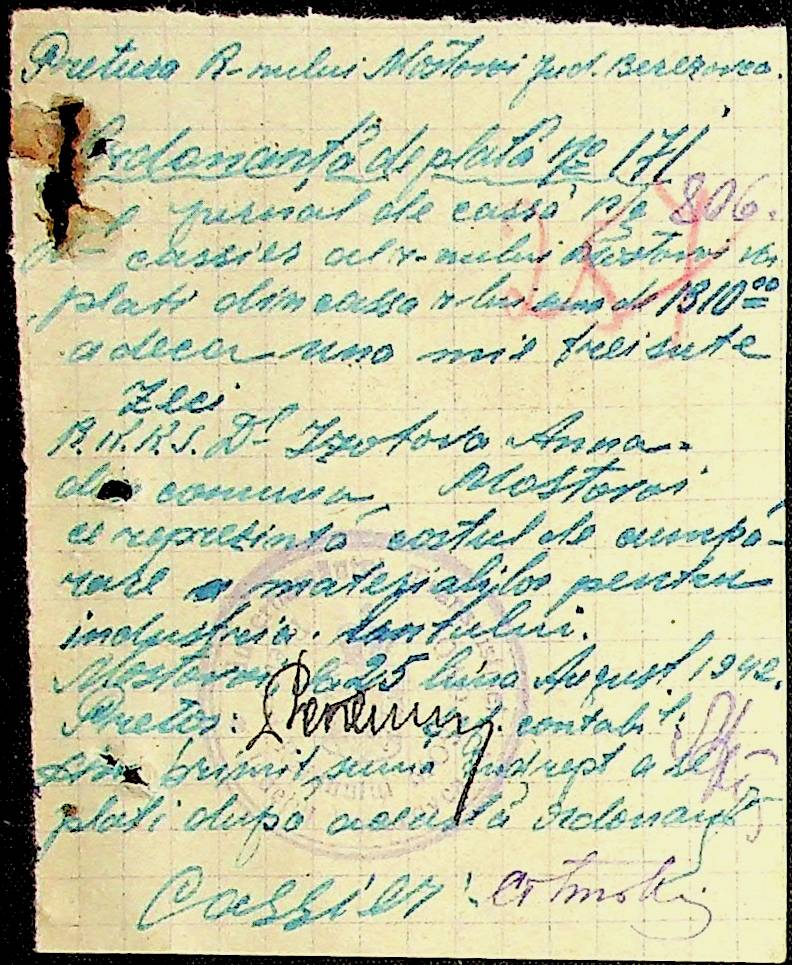 Pretura R-nului Mostovoi Jud. Berezovca.
Ordonanță de plată No 171
jurnal de cassă No 806.
cassier al r-nului Mostovoi va
plati din cassa r-lui suma de 1310 00
adeca una mie treisute
Zeci
R.K.K.S. Dl Izotova Anna
din comuna Mostovoi
ce reprezintă costul de cumpă-
rare a materialilor pentru
industria lantului.
Mostovoi, la 25 luna August 1942.
Pretor: contabil:
primit suma
plati după aceasta ordonanță
Cassier: